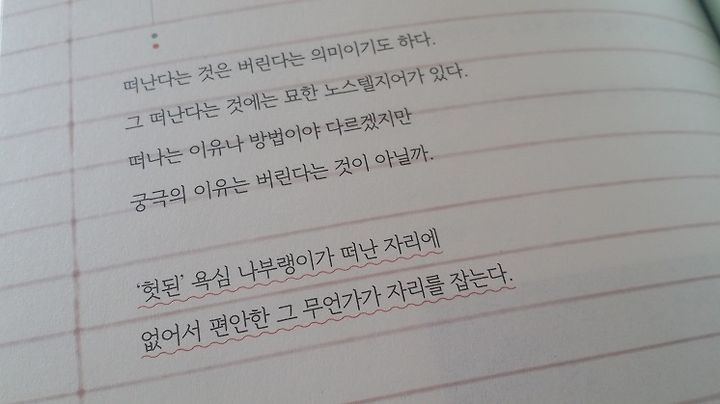 떠난다는 것은 버린다는 의미이기도 하다.
그 떠난다는 것에는 묘한 노스텔지어가 있다.
떠나는 이유나 방법이야 다르겠지만
궁극의 이유는 버린다는 것이 아닐까.
‘헛된’ 욕심 나부랭이가 떠난 자리에
없어서 편안한 그 무언가가 자리를 잡는다.